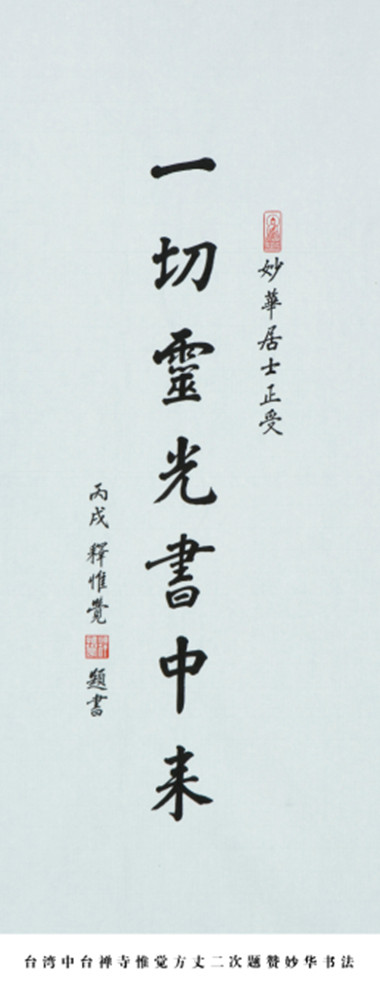 妙華居士正受
一切靈光書中来
丙戌 釋惟覺 題書
台湾中台禅寺惟觉方丈二次题赞妙华书法